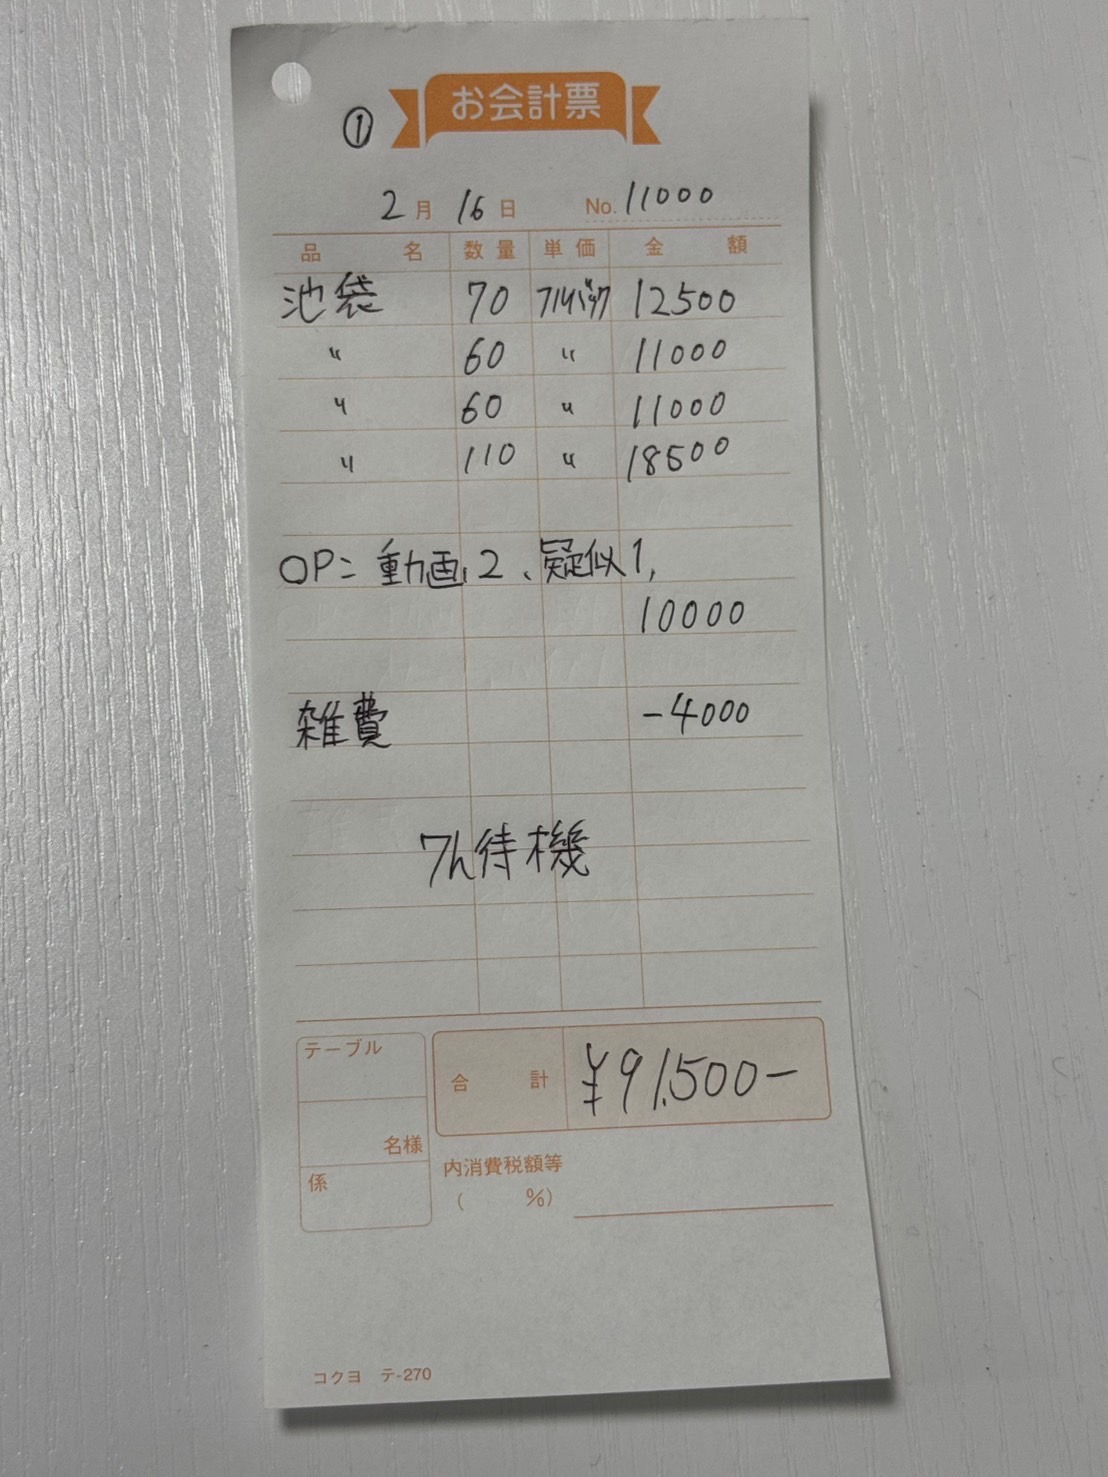 ①
お会計票
2月 16日 No.11000
品名 数量 単価 金額
池袋 70 フルバック 12500
〃 60 〃 11000
〃 60 〃 11000
〃 110 〃 18500
OP= 動画2、疑似1,
10000
雑費 -4000
7h待機
テーブル
合計 ¥91,500-
名様
係
内消費税額等
( %)
コクヨ テ-270